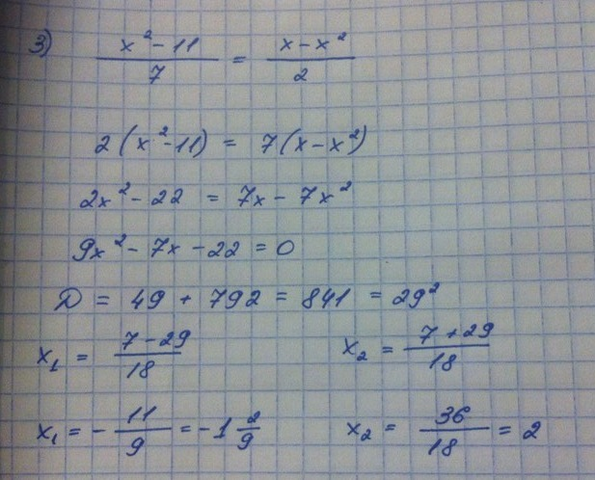 3) (x² - 11)/7 = (x - x²)/2
2(x² - 11) = 7(x - x²)
2x² - 22 = 7x - 7x²
9x² - 7x - 22 = 0
D = 49 + 792 = 841 = 29²
x₁ = (7 - 29)/18 x₂ = (7 + 29)/18
x₁ = - 11/9 = -1 2/9 x₂ = 36/18 = 2